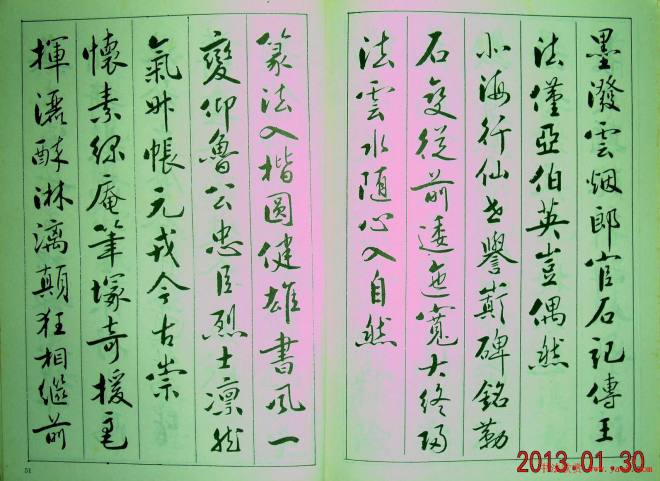 墨潑雲烟郎官石記傳王
法僅亞伯英豈偶然
北海行仙譽碑銘勒
石變從前逶迤寬大終歸
法雲水随心入自然
篆法入楷圓健雄書風一
變仰魯公忠臣烈士凛然
氣卅帳元戎今古崇
懷素綠庵筆塚奇援毫
揮灑醉淋漓顛狂相繼前
51
2013.01.30